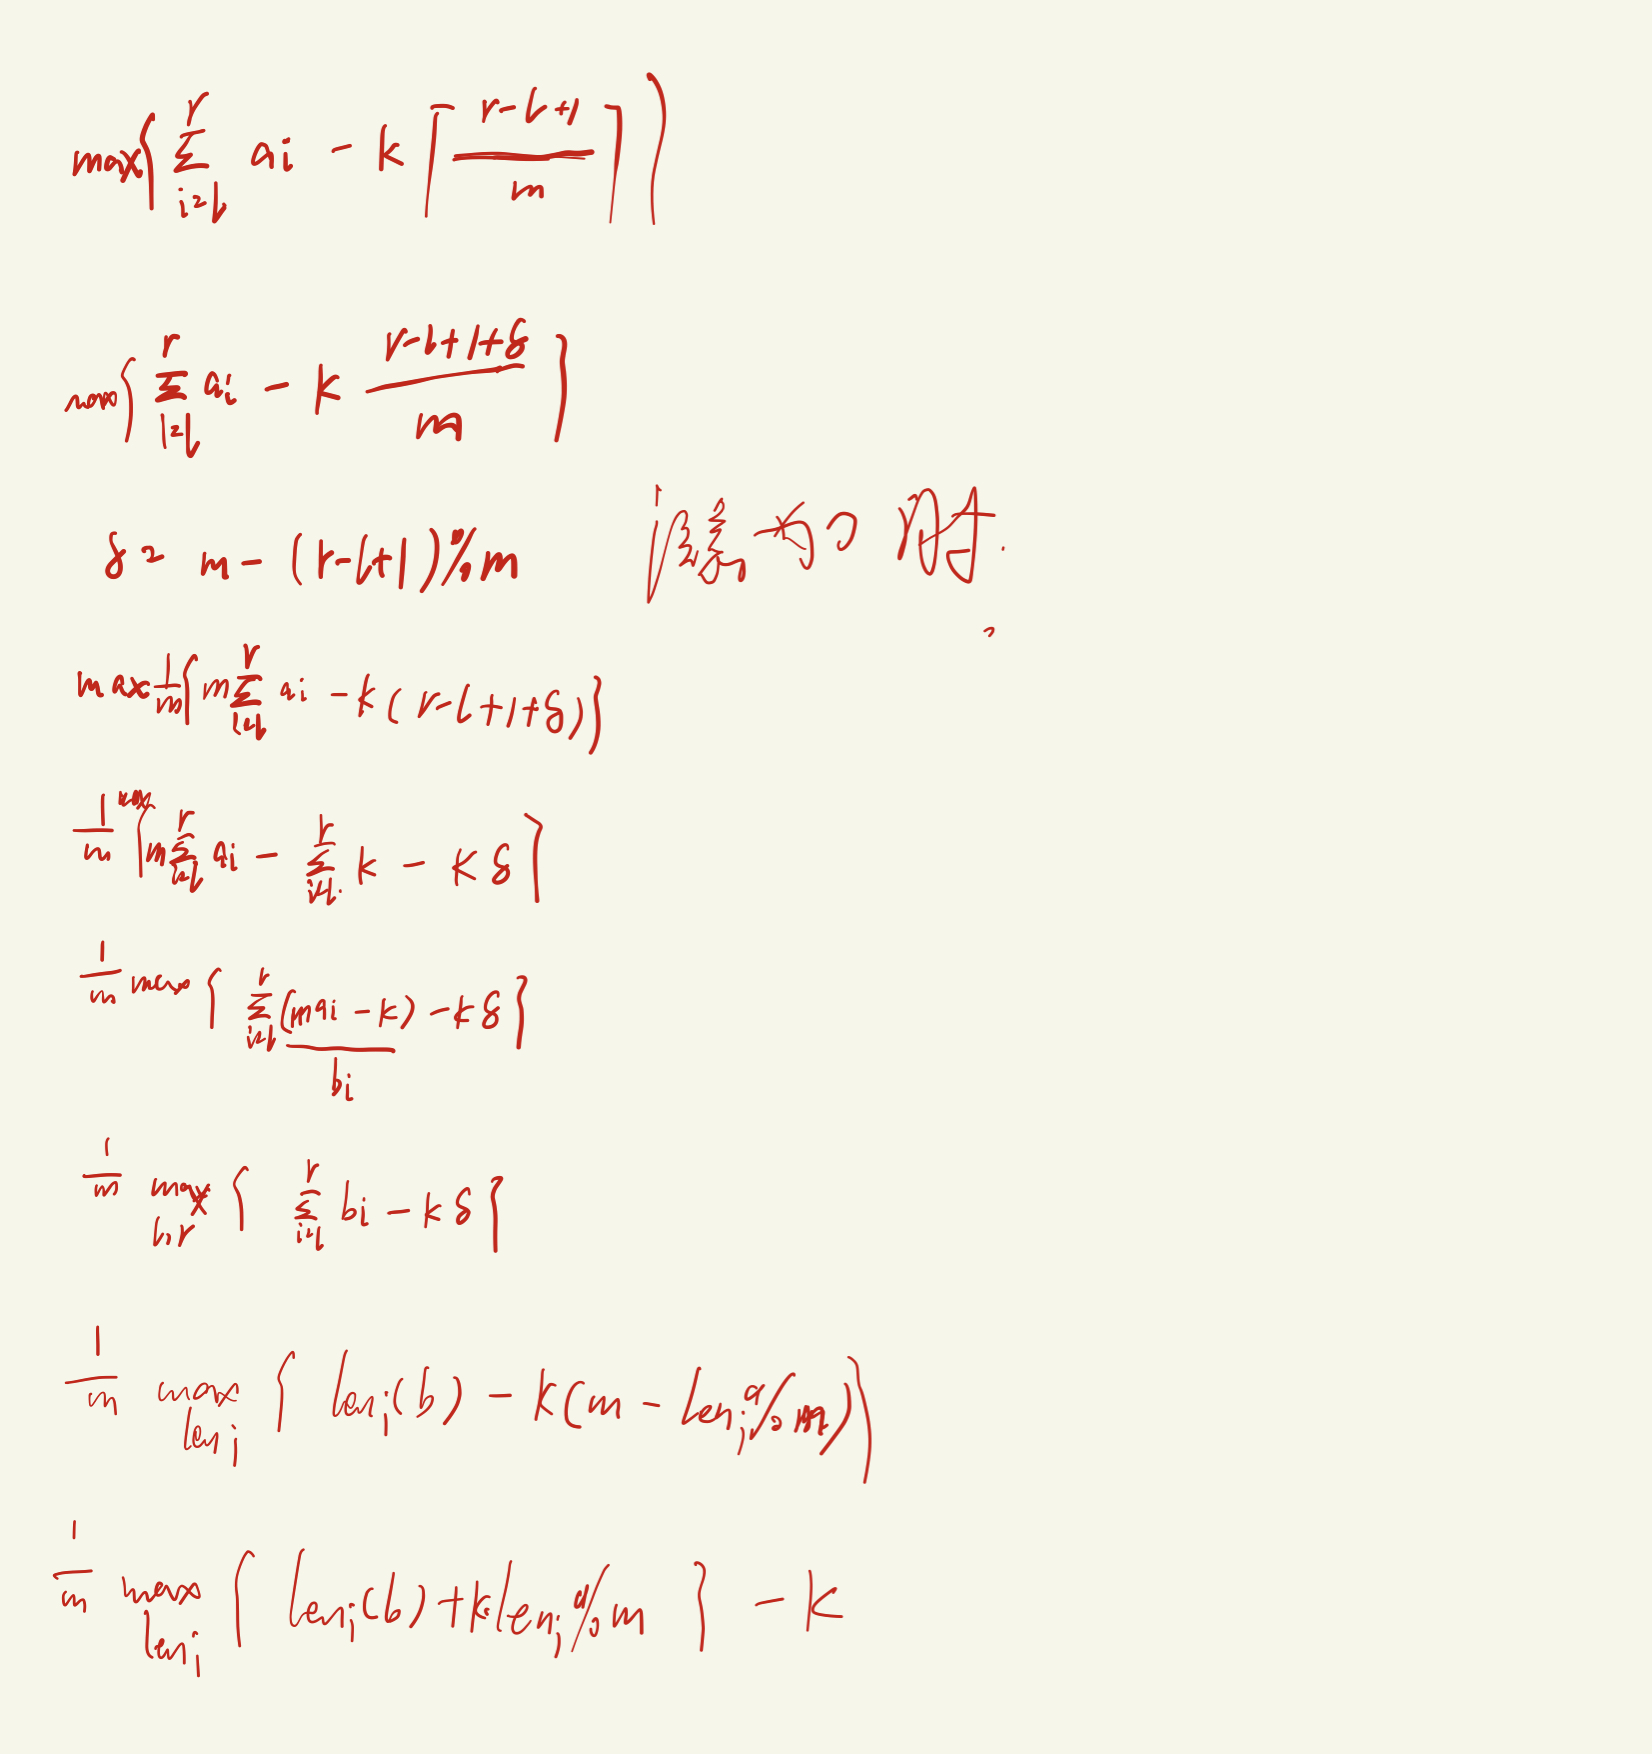 max{ Σ_{i=l}^{r} ai - k ⌈ (r-l+1)/m ⌉ }
max{ Σ_{i=l}^{r} ai - k (r-l+1+δ)/m }
δ = m - (r-l+1)%m 为0 时.
max 1/m { m Σ_{i=l}^{r} ai - k(r-l+1+δ) }
1/m max { m Σ_{i=l}^{r} ai - Σ_{i=l}^{r} k - kδ }
1/m max { Σ_{i=l}^{r} (mai - k) - kδ }
bi
1/m max_{l,r} { Σ_{i=l}^{r} bi - kδ }
1/m max_{len_j} { len_j(b) - k(m - len_j%m) }
1/m max_{len_j} { len_j(b) + k len_j%m } - k